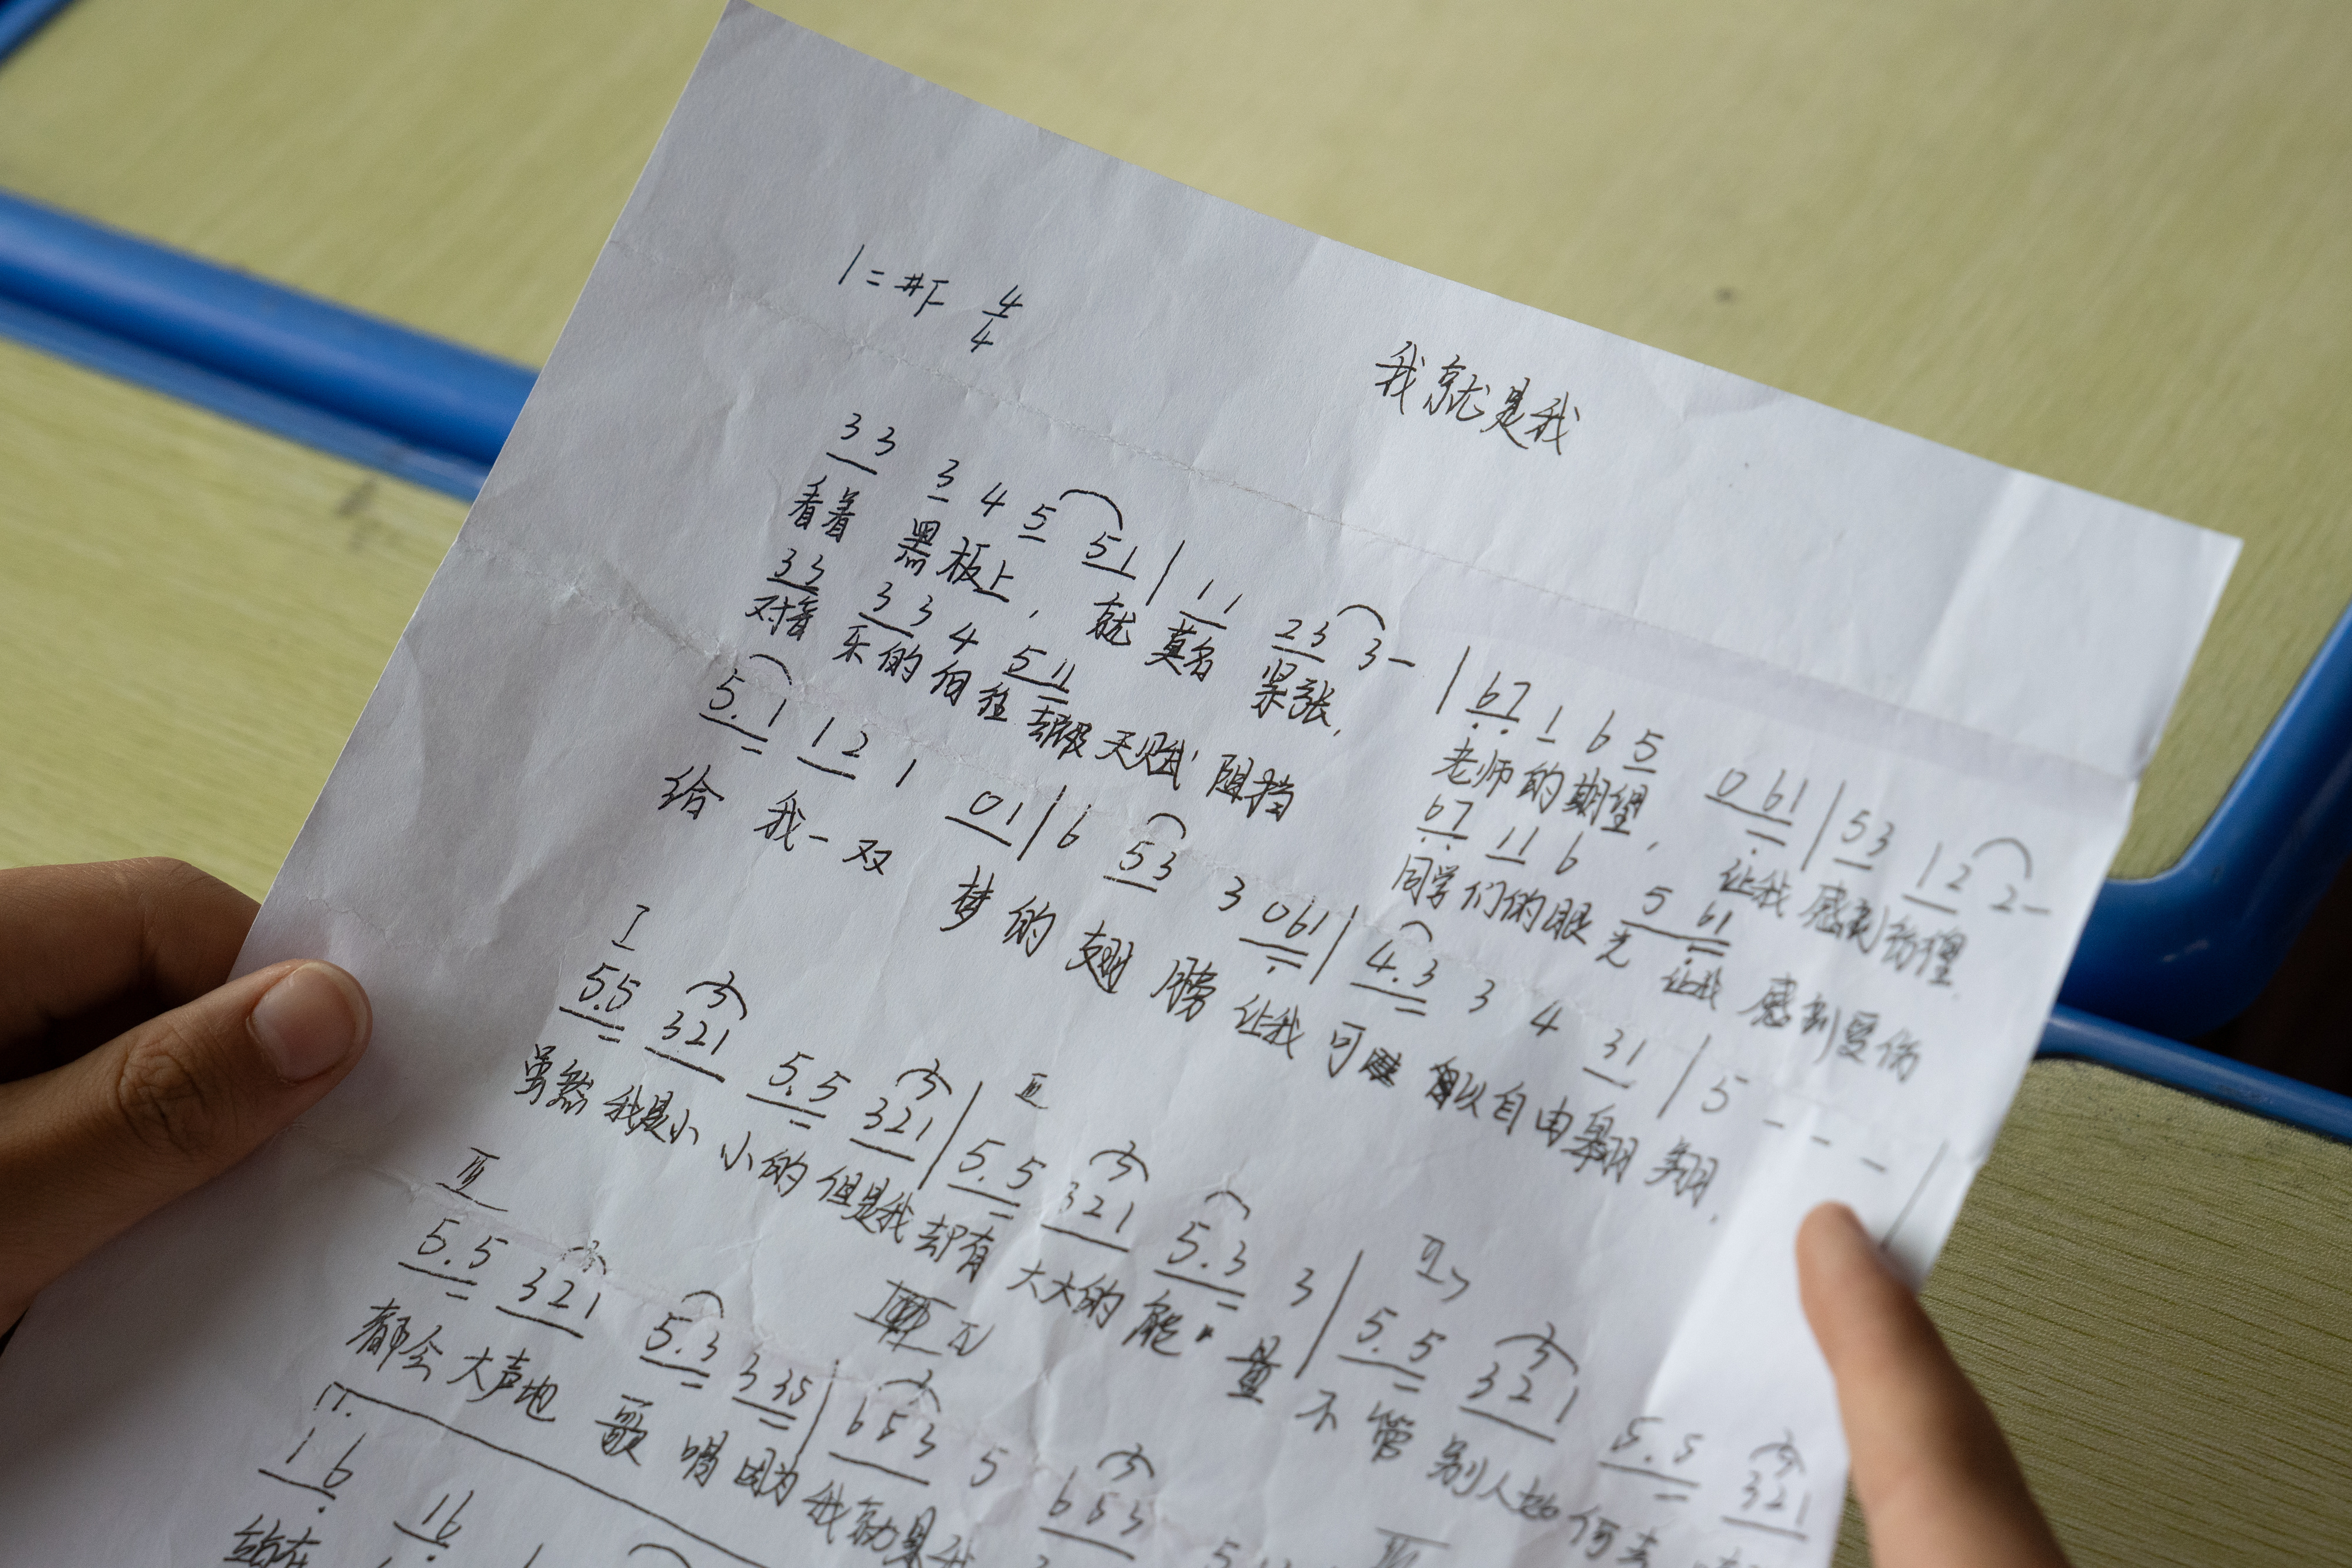 1=#F 4/4
我就是我
33 3 4 5 51 | 11 23 3- | 67 1 6 5 061 | 53 12 2-
看着 黑板上， 就 莫名 紧张， 老师的期望， 让我 感到彷徨
33 33 4 5 11 67 11 6 5 61
对音乐的向往 却被天赋 阻挡 同学们的眼光 让我 感到受伤
5.1 12 1 01 | 6 53 3 061 | 4.3 3 4 31 | 5 - - - |
给 我一双 梦的 翅膀 让我 可 以自由翱翔，
I II IV
5.5 321 5.5 321 | 5.5 321 5.3 3 | 5.5 321 5.5 321
虽然 我是小小的 但是我 却有 大大的 能量 不管 别人如何去
III IV
5.5 321 5.3 335 | 653 5 653 5
都会 大声地 歌唱 因为 我就是我
1.
16 16
站在